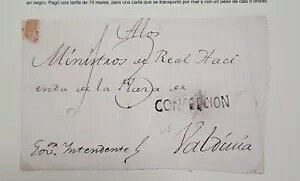 en negro. Pagó una tarifa de 19 reales, para una carta que se transportó por mar y con un peso de casi 5 onzas.
Alos
Ministros de Real Haci
enda de la Plaza de
CONCEPCION
Valdivia
Intendente